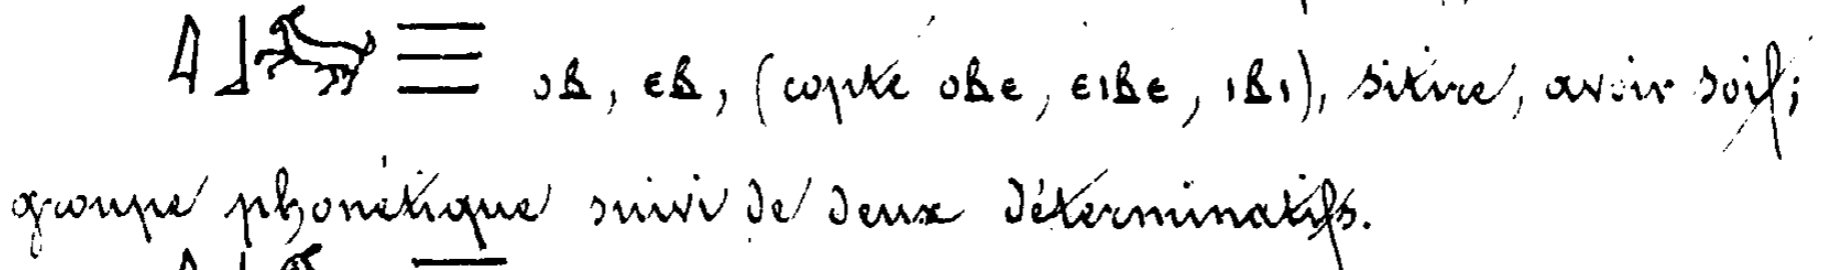 𓇋𓃀𓃙𓈗 ⲟⲃ, ⲉⲃ, (copte ⲟⲃⲉ, ⲉⲓⲃⲉ, ⲓⲃⲓ), sitire, avoir soif;
groupe phonétique suivi de deux déterminatifs.